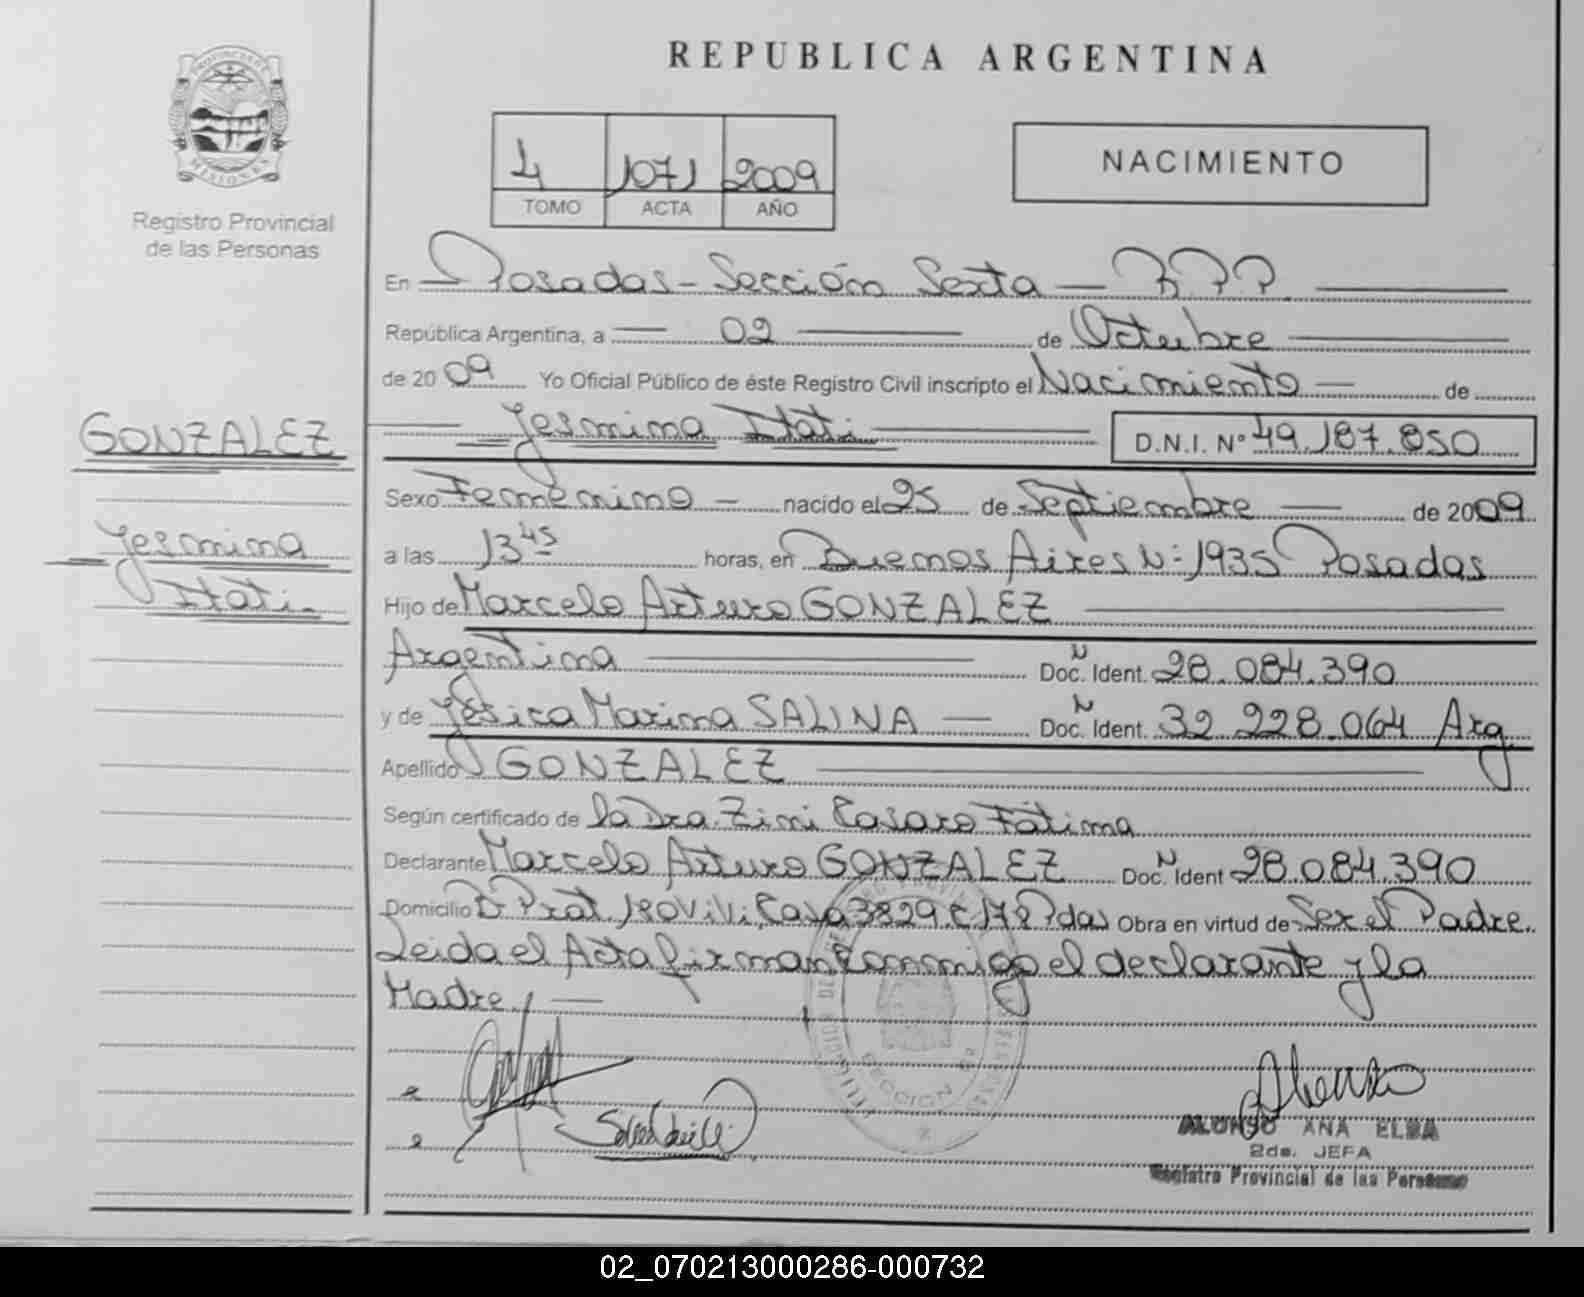 REPUBLICA ARGENTINA
PROVINCIA DE
MISIONES
Registro Provincial
de las Personas
4 1071 2009
TOMO ACTA AÑO
NACIMIENTO
En Posadas - Sección Sexta — R.P.P.
República Argentina, a — 02 — de Octubre
de 2009 Yo Oficial Público de éste Registro Civil inscripto el Nacimiento — de
GONZALEZ
— Yesmina Itati — D.N.I. Nº 49.187.850
Sexo Femenino — nacido el 25 de Septiembre — de 2009
Yesmina
Itati.
a las 13 45 horas, en Buenos Aires Nº 1935 Posadas
Hijo de Marcelo Arturo GONZALEZ
Argentina — Doc. Ident. N 28.084.390
y de Yésica Marina SALINA — Doc. Ident. N 32.228.064 Arg.
Apellido GONZALEZ
Según certificado de la Dra. Zini Casaro Fátima
Declarante Marcelo Arturo GONZALEZ Doc. Ident N 28.084.390
Domicilio B Prat 180 Viv. Casa 3829 C 178 Pdas Obra en virtud de Ser el Padre.
Leida el Acta firman Conmigo el declarante y la
Madre. —
SECCION 6ª
ALONSO ANA ELBA
2da. JEFA
Registro Provincial de las Personas
02_070213000286-000732